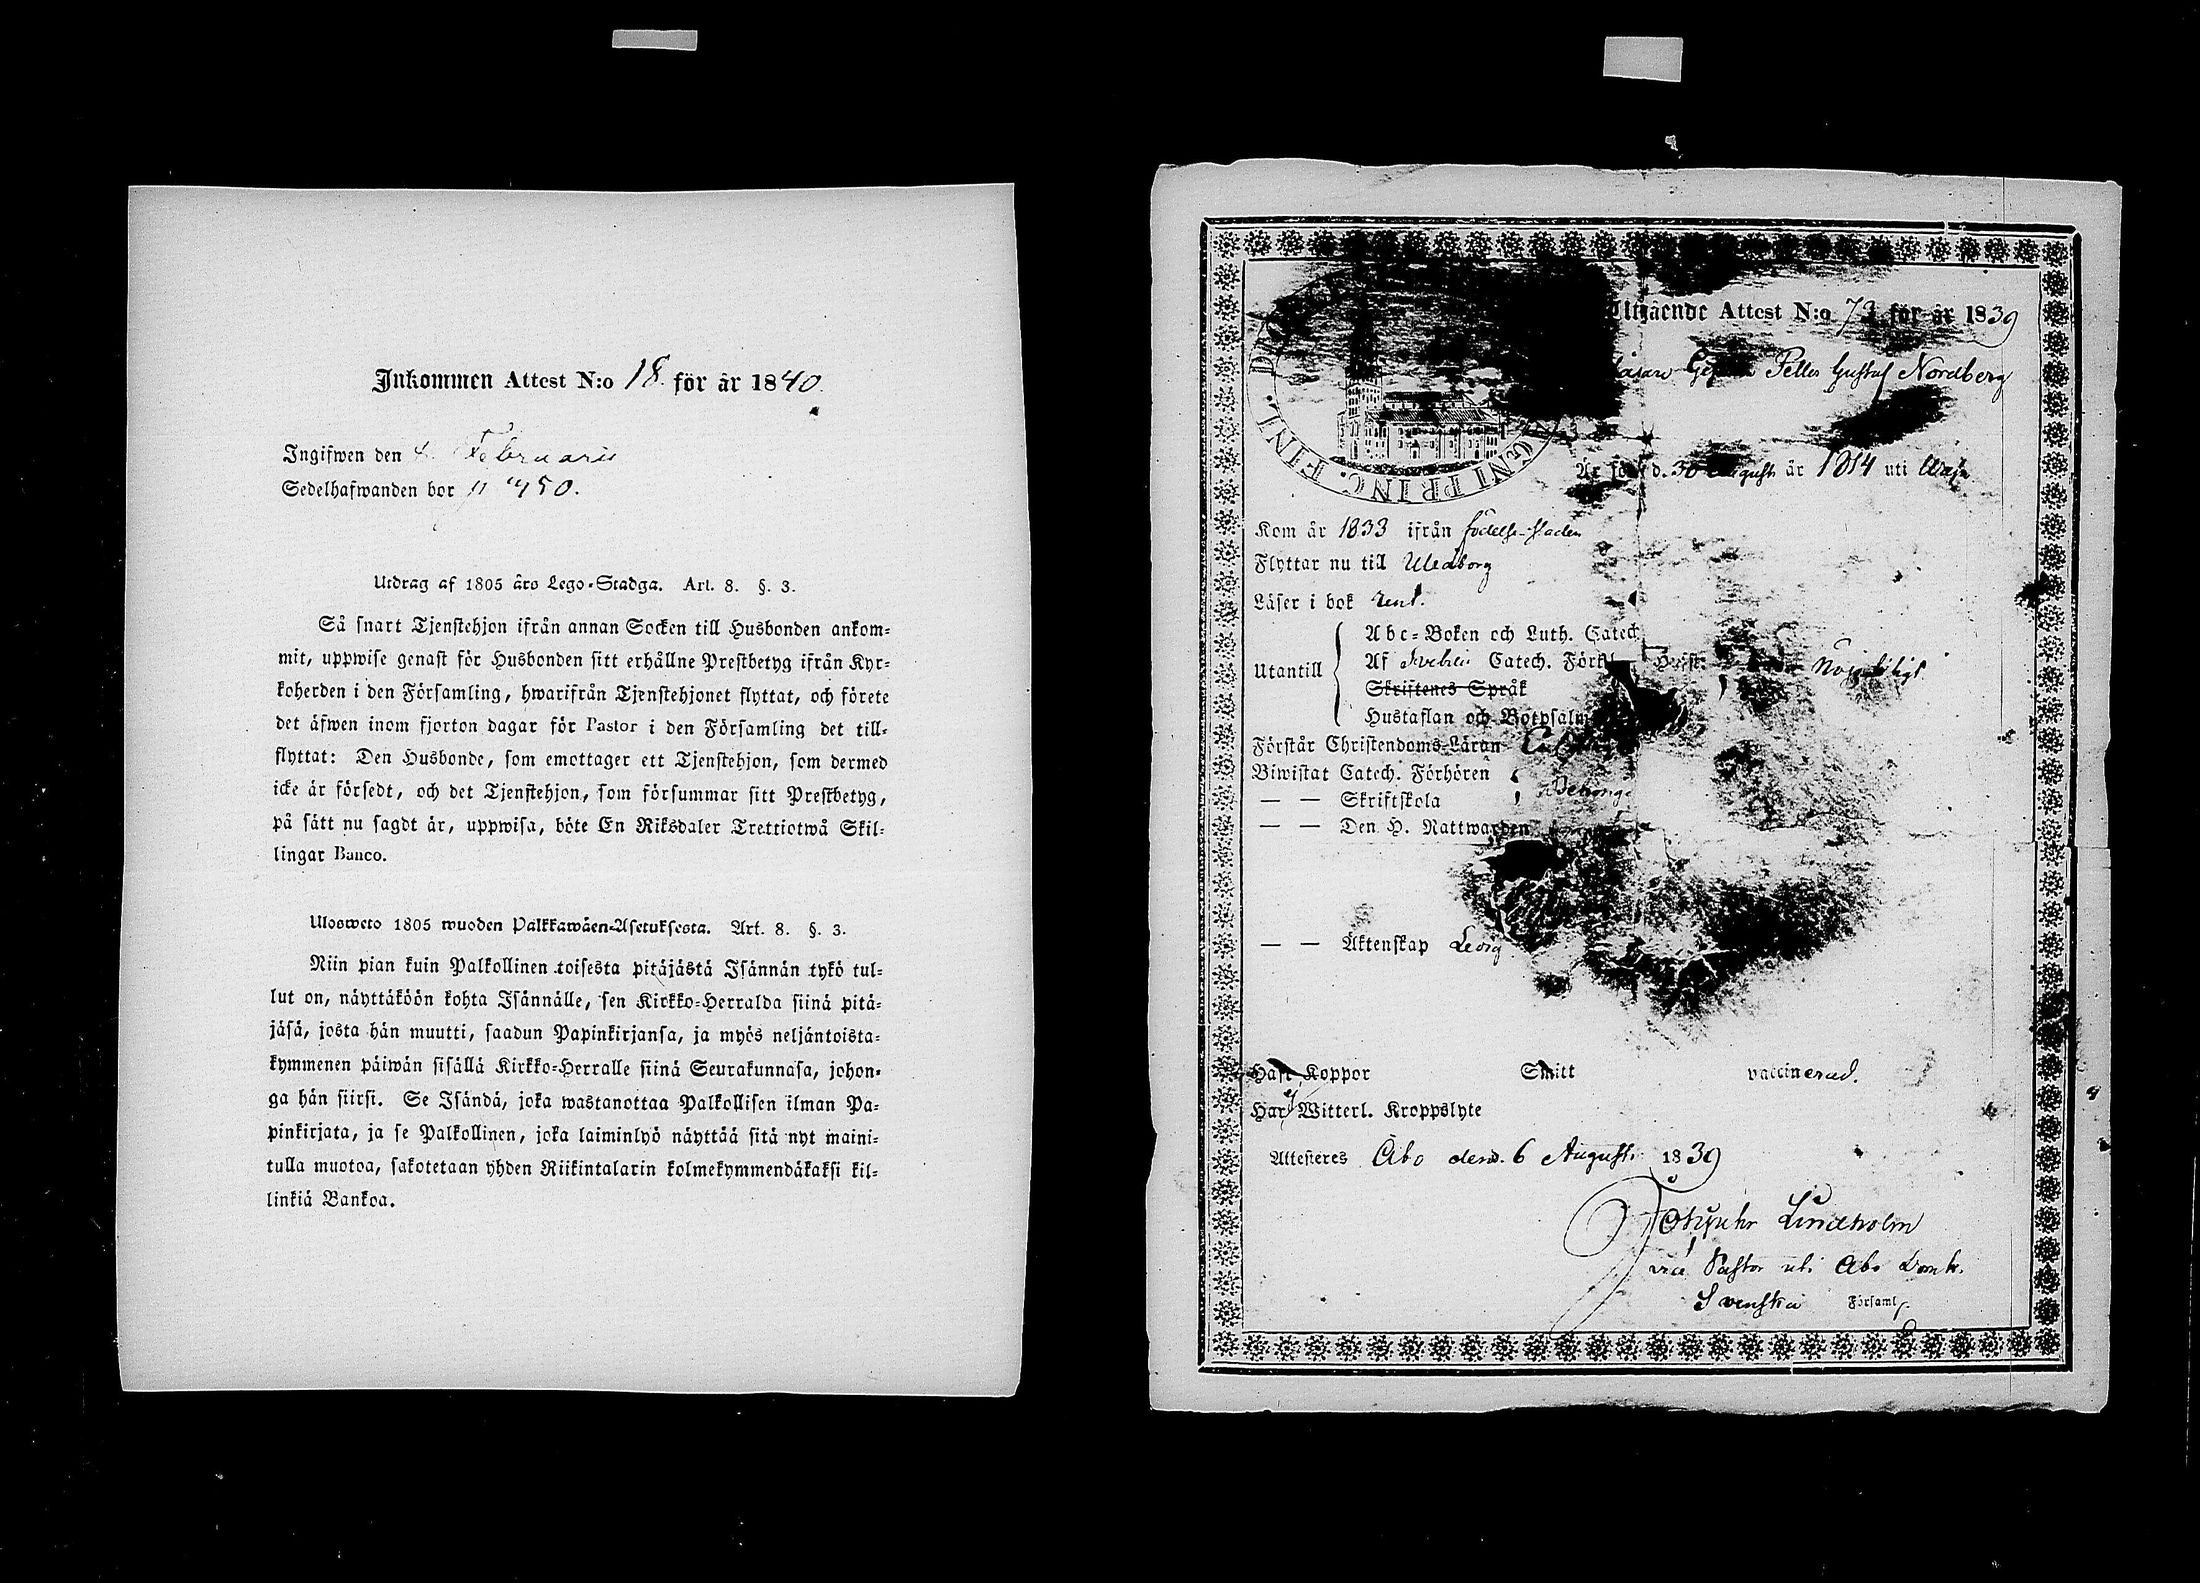 Inkommen Attest N:o 18. för år 1840.
Ingifwen den 4. Februarii
Sedelhafwanden bor N 450.
Utdrag af 1805 års Lego-Stadga. Art. 8. §. 3.
Så snart Tjenstehjon ifrån annan Socken till Husbonden ankom-
mit, uppwise genast för Husbonden sitt erhållne Prestbetyg ifrån Kyr-
koherden i den Församling, hwarifrån Tjenstehjonet flyttat, och förete
det äfwen inom fjorton dagar för Pastor i den Församling det till-
flyttat: Den Husbonde, som emottager ett Tjenstehjon, som dermed
icke är försedt, och det Tjenstehjon, som försummar sitt Prestbetyg,
på sätt nu sagdt är, uppwisa, böte En Riksdaler Trettiotwå Skil-
lingar Banco.
Ulosweto 1805 wuoden Palkkawäen-Asetuksesta. Art. 8. §. 3.
Niin pian kuin Palkollinen toisesta pitäjästä Isännän tykö tul-
lut on, näyttäköön kohta Isännälle, sen Kirkko-Herralda siinä pitä-
jäsä, josta hän muutti, saadun Papinkirjansa, ja myös neljäntoista-
kymmenen päiwän sisällä Kirkko-Herralle siinä Seurakunnasa, johon-
ga hän siirsi. Se Isändä, joka wastanottaa Palkollisen ilman Pa-
pinkirjata, ja se Palkollinen, joka laiminlyö näyttää sitä nyt maini-
tulla muotoa, sakotetaan yhden Riikintalarin kolmekymmendäkaksi kil-
linkiä Bankoa.
Utgående Attest N:o 73 för år 1839
Peller Gustaf Nordberg
GNI PRINC. FINL.
Är född d. 30 Augusti år 1814 uti Wasa
Kom år 1833 ifrån födelse-staden
Flyttar nu till Uleåborg
Läser i bok rent.
Utantill
Abc-Boken och Luth. Catech
Af Svebelii Catech. Förkl
Skriftenes Språk
Hustaflan och Botpsalm
Nöjaktigt
Förstår Christendoms-Läran
Biwistat Catech. Förhören
— — Skriftskola
— — Den H. Nattwarden
— — Äktenskap Ledig
Haft Koppor Smitt vaccinerad.
Har Witterl. Kroppslyte
Attesteres Åbo dend. 6 Augusti 1839
Lindholm
vice Pastor uti Åbo Domk.
Svenska Församl.